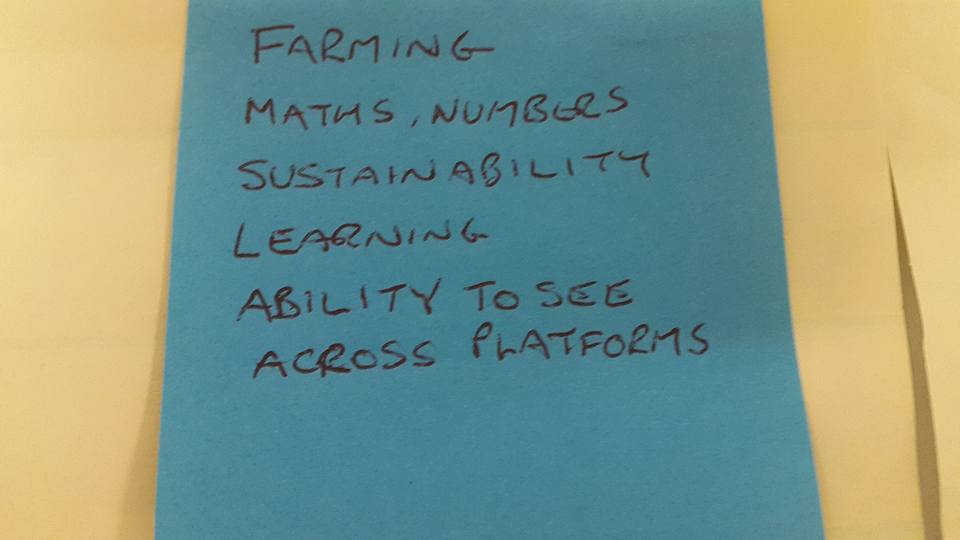 FARMING
MATHS, NUMBERS
SUSTAINABILITY
LEARNING
ABILITY TO SEE
ACROSS PLATFORMS